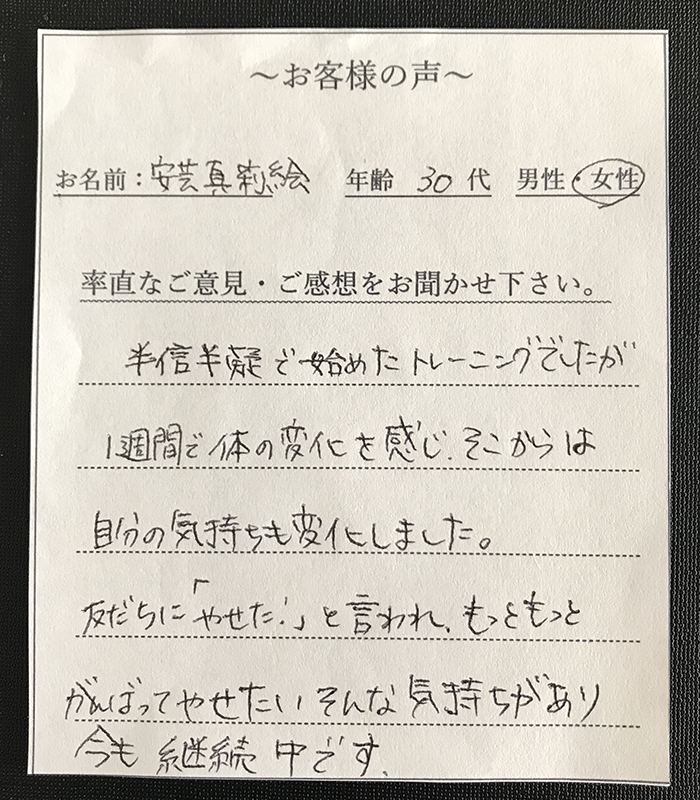 ～お客様の声～
お名前：安芸真莉絵 年齢 30代 男性・女性
率直なご意見・ご感想をお聞かせ下さい。
半信半疑で始めたトレーニングでしたが
1週間で体の変化を感じ、そこからは
自分の気持ちも変化しました。
友だちに「やせた!」と言われ、もっともっと
がんばってやせたいそんな気持ちがあり
今も継続中です。